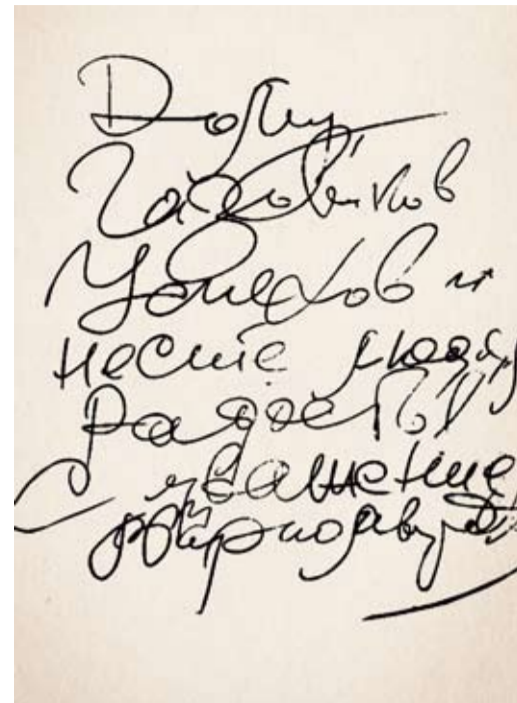 Дому
Чаковиков
Успехов и
несите людям
Радость!
С уважением